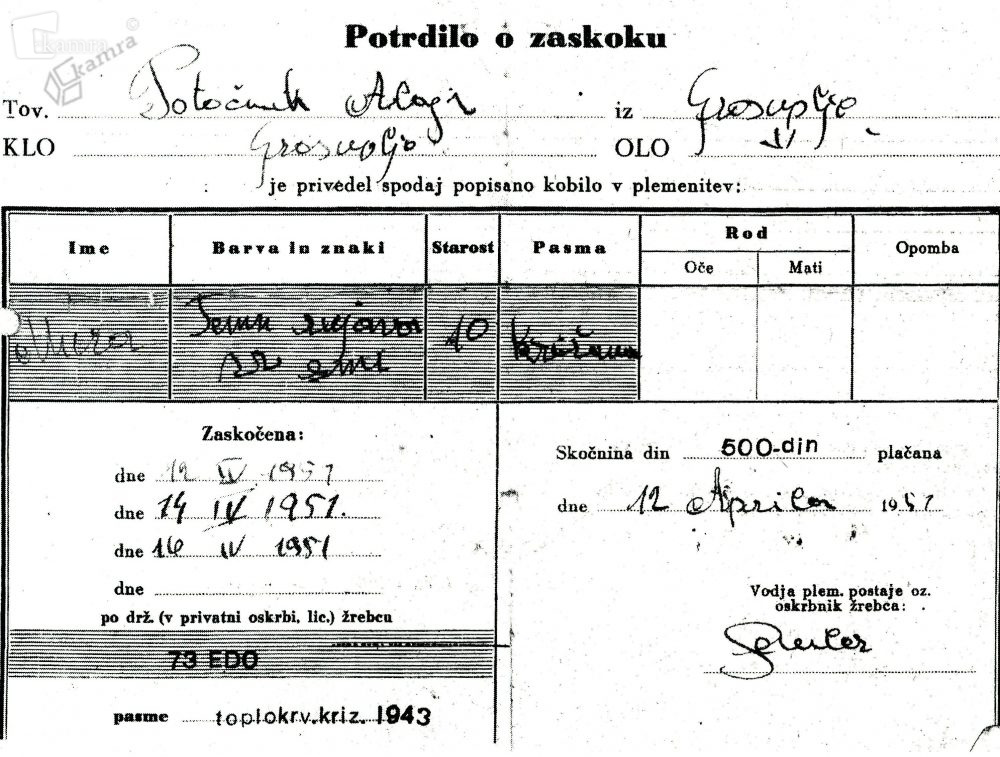 kamra
kamra
Potrdilo o zaskoku
Tov. Potočnik Alojz iz Grosuplje
KLO Grosuplje OLO "
je privedel spodaj popisano kobilo v plemenitev:
Ime Barva in znaki Starost Pasma Rod Opomba
Oče Mati
Temn rujava 10 Križana
Zaskočena:
dne 12 IV 1951
dne 14 IV 1951.
dne 16 IV 1951
dne
po drž. (v privatni oskrbi, lic.) žrebcu
73 EDO
pasme toplokrv.kriz. 1943
Skočnina din 500-din plačana
dne 12 Aprila 1951
Vodja plem. postaje oz.
oskrbnik žrebca: